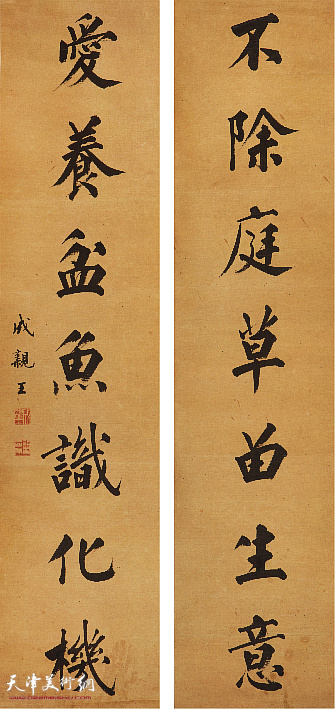 不除庭草留生意
愛養盆魚識化機
成親王
天津美术网